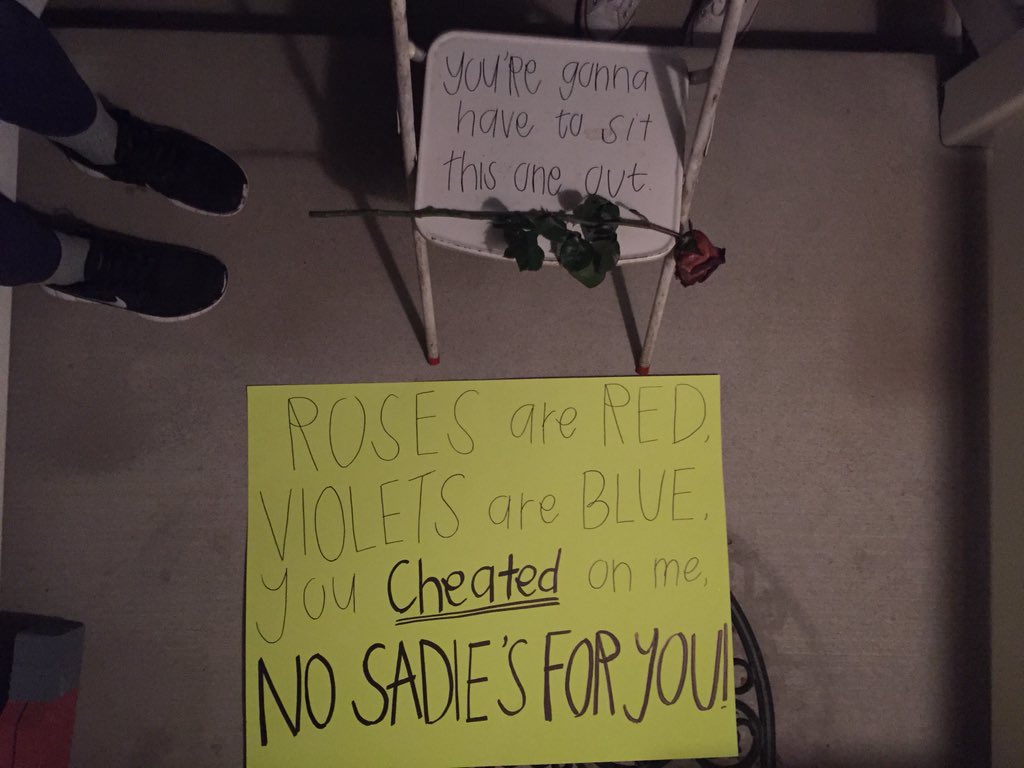 you'Re gonna
have to sit
this one out.
ROSES are RED,
VIOLETS are BLUE,
you Cheated on me,
NO SADIE'S FOR YOU!